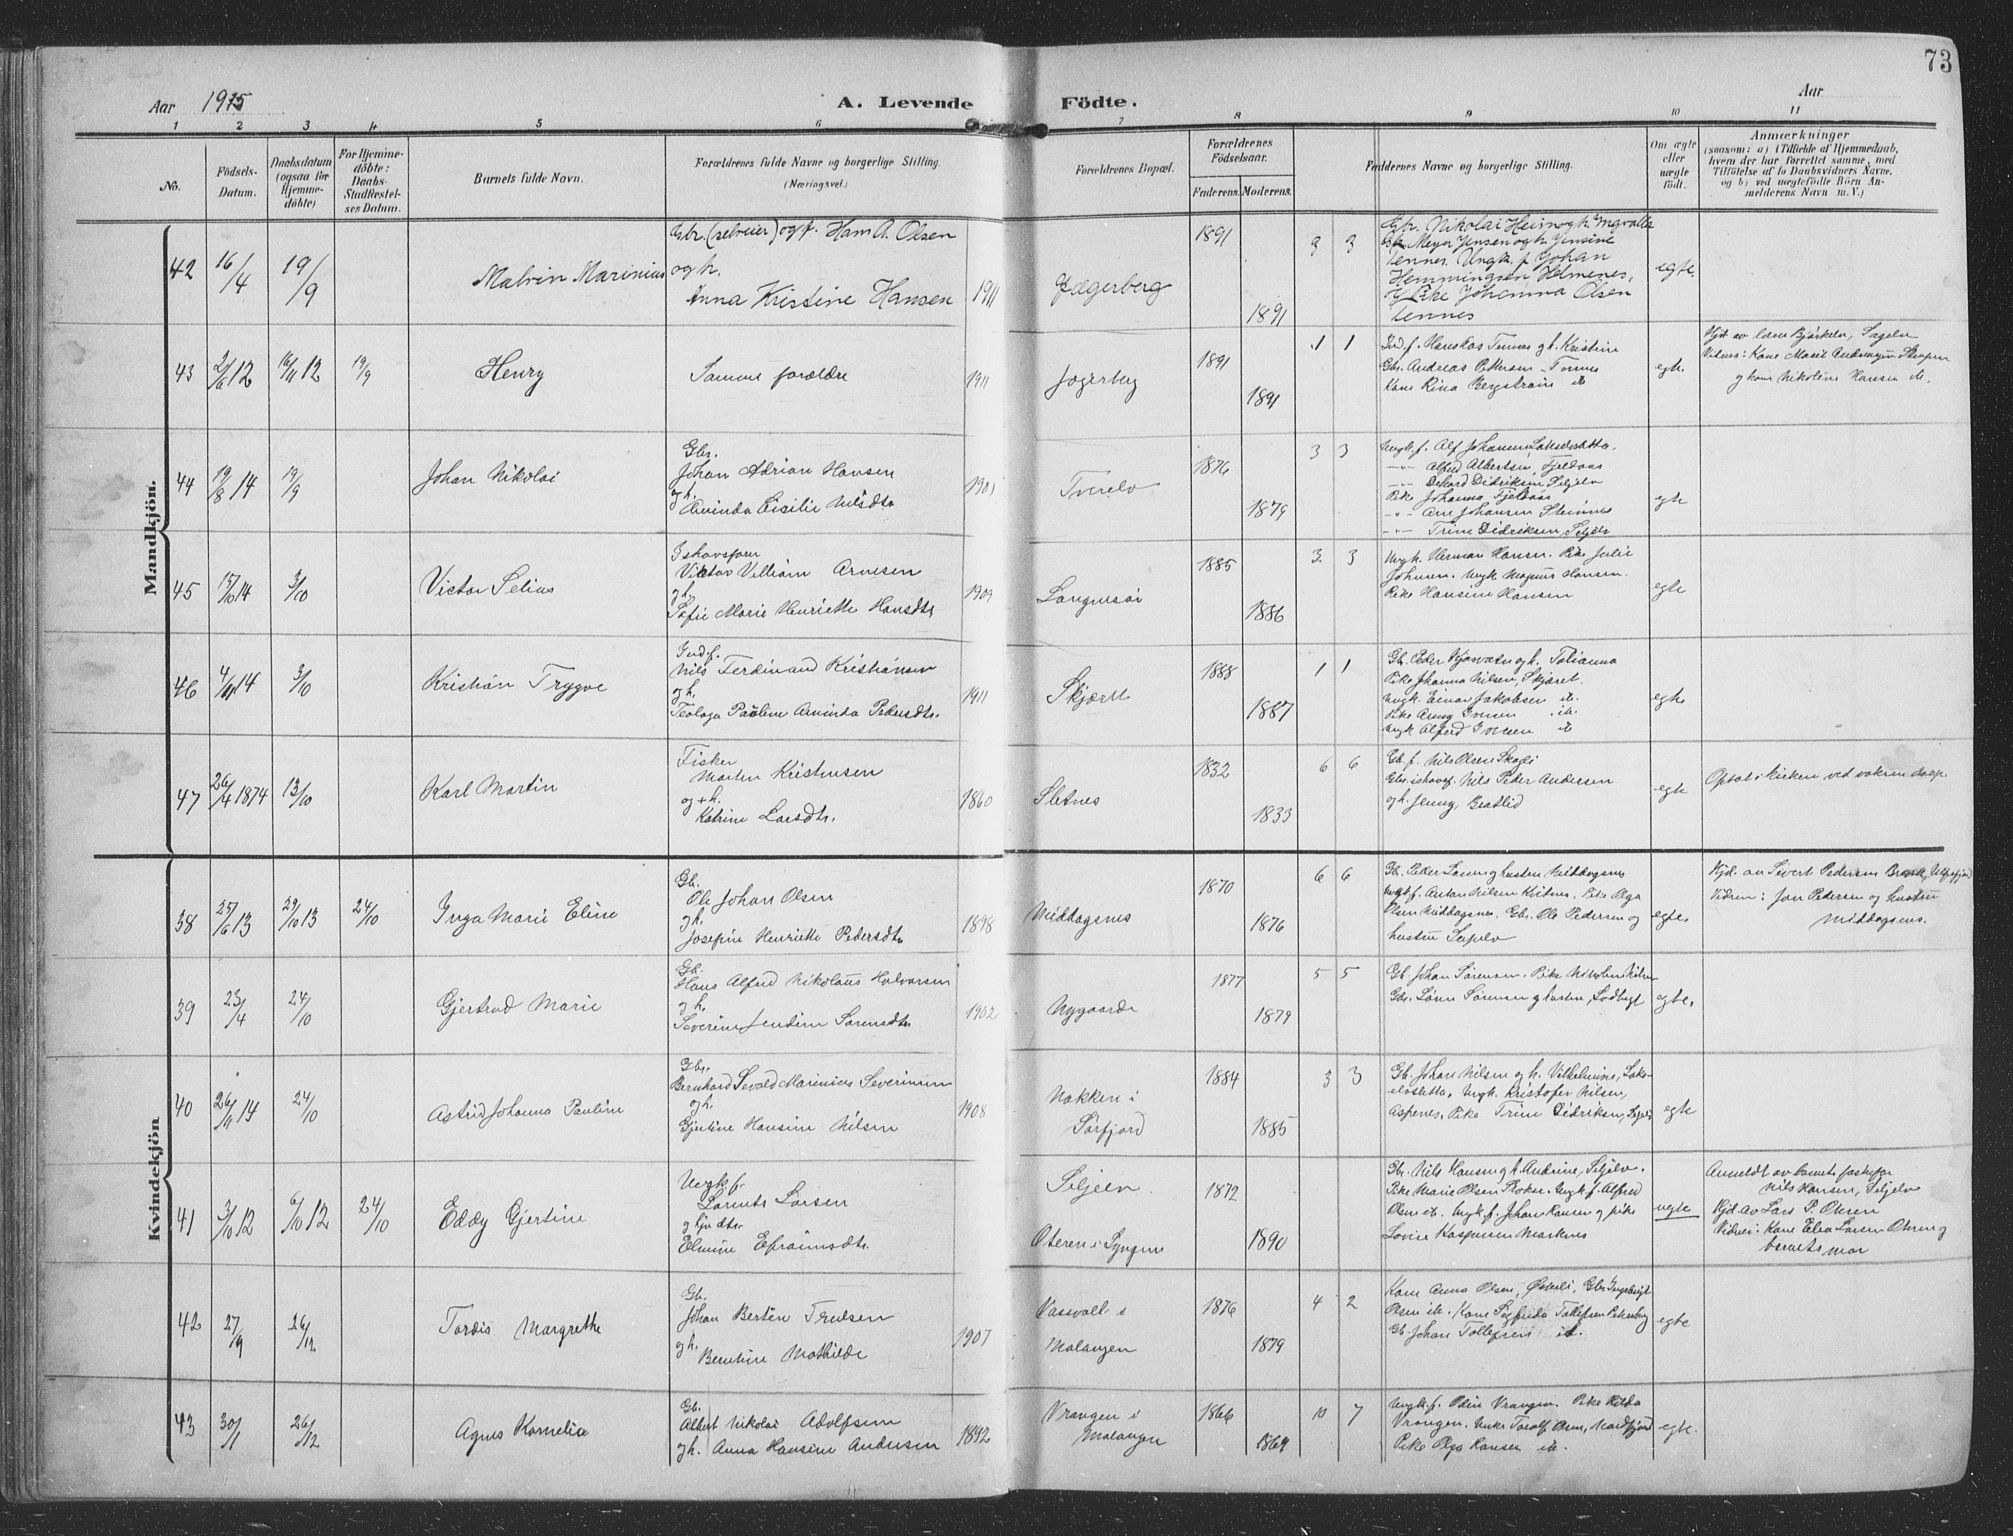 73
Aar 1915
A. Levende Födte.
Aar
1 2 3 4 5 6 7 8 9 10 11
No.
Födsels-Datum.
Daabsdatum (ogsaa for Hjemme-döbte)
For Hjemme-döbte: Daabs-Stadfæstel-ses Datum.
Barnets fulde Navn.
Forældrenes fulde Navne og borgerlige Stilling.
(Næringsvei.)
Forældrenes Bopæl.
Forældrenes Födselsaar.
Faderens. Moderens.
Faddernes Navne og borgerlige Stilling.
Om ægte eller uægte födt.
Anmærkninger
(saasom: a) i Tilfælde af Hjemmedaab,
hvem der har forrettet samme, med
Tilföielse af to Daabsvidners Navne,
og b) ved uægtefödte Börn An-
melderens Navn m. V.)
Mandkjön.
42 16/4 19/9 Malvin Marinius
Gbr. (selveier) og f. Hans A. Olsen
og h.
Anna Kristine Hansen 1911
Jægerberg 1891 1891 3 3
Gbr. Nikolai Heim og h. Ingvalla
Gbr. Meyer Jensen og h. Jensine
Tennes. Ungk. f. Johan
Hemmingsen Holmenes,
Pike Johanna Olsen
Tennes
egte
43 2/6 12 16/11 12 19/9 Henry
Samme forældre 1911
Jægerberg 1891 1891 1 1
Kristine
Gbr. Andreas Pettersen Tennes
Kone Rina Bergstrøm
egte
Vidner: Kone Marit
og kone Nikoline Hansen
44 19/8 14 19/9 Johan Nikolai
Gbr.
Johan Adrian Hansen
og h.
Cisilie Nilsdtr 1901
Tverelv 1876 1879 3 3
Ungk. f. Alf Johansen
-"- Alfred Albertsen, Fjeldaas
-"- Didriksen Seljelv
Pike Johanna Fjeldaas
-"- Johansen
-"- Trine Didriksen, Seljelv
egte
45 14 3/10 Victor Selius
Ishavsfarer
Victor Villiam Arnesen
og h.
Sofie Marie Henriette Hansdtr 1909
1885 1886 3 3
Ungk. Herman Hansen. Pike Julie
Johnsen. Ungk. Magnus Hansen.
Pike Hansine Hansen
egte
46 14 3/10 Kristian Trygve
Indf.
Nils Ferdinand Kristiansen
og h.
Teologa Pauline Pedersdtr. 1911
Skjæret 1888 1887 1 1
Gbr. Peder og h. Tolianna
Pike Johanna Nilsen, Skjæret.
Ungk. Einar Jakobsen
Pike Anny Iversen
Ungk. Alfred Iversen
egte
47 26/4 1874 13/10 Karl Martin
Fisker
Morten Kristensen
og + h.
Katrine Larsdtr. 1860
Sletnes 1832 1833 6 6
Gb. f. Nils Olsen
Nils Peder Andersen
og h. Jenny, Bratlid
egte
Optat i kirken ved voksen daap.
Kvindekjön
38 25/6 13 29/10 13 24/10 Inga Marie Eline
Gb.
Ole Johan Olsen
og h.
Josefine Henriette Pedersdtr 1898
Middagsnes 1870 1876 6 6
Gb. Peder Larsen og husten Middagsnes
Ungk. f. Anton Nilsen Pike Olga
Olsen Middagsnes. Gbr. Ole Pedersen og
hustru
egte.
Hjd. av Sivert Pedersen
Vidner: Jon Pedersen og hustru
Middagsnes.
39 23/4 24/10 Gjertrud Marie
Gb.
Hans Alfred Nikolaus Halvorsen
og h.
Severine Jendine Sørensdtr 1902
Nygaarde 1877 1879 5 5
Gb. Johan Sørensen. Pike
Gbr. Søren Sørensen og husten,
egte.
40 26/11 14 24/10 Astrid Johanna Pauline
Gbr.
Bernhard Sevald Marinius Severinsen
og h.
Gjertine Hansine Nilsen 1908
Nakken i
Sørfjord 1884 1885 3 3
Gb. Johan Nilsen og h. Vilhelmine,
Ungk. Kristofer Nilsen,
Aspenes, Pike Trine Didriksen,
egte
41 3/10 12 6/10 12 24/10 Eddy Gjertine
Ungk f.
Lorents Larsen
og
Elmine Efraimsdtr.
Seljelv
Oteren i Lyngen 1872 1890
Gbr. Nils Hansen og h. Andrine, Seljelv.
Pike Marie Olsen Ungk. f. Alfred
Olsen Ungk. f. Johan Hansen og pike
Lovise Kaspersen Marknes
uegte
Anmeldt av barnets
Nils Hansen, Seljelv
Hjd. av Lars P. Olsen
Vidner: Kone Elea Larsen Oteren og
barnets mor
42 27/9 26/12 Tordis Margrethe
Gb.
Johan Berten Trulsen
og h.
Berntine Mathilde 1907
Vassvoll i
Malangen 1876 1879 4 2
Kone Anna Olsen, Gbr.
Olsen Kone Tollefsen
Gb. Johan Tollefsen
egte
43 30/1 26/12 Agnes Kornelia
Gb.
Albert Nikolai Adolfsen
og h. Anna Hansine Andersen 1892
Vrangen i
Malangen 1866 1869 10 7
Ungk. f. Odin Vrangen. Pike Hilda
Vrangen.
Pike Olga Hansen
egte.